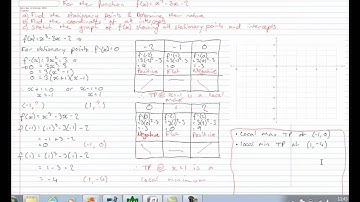 For the function f(x) = x³ - 3x - 2
a) Find the stationary points & determine their nature
b) Find the coordinates of all intercepts
c) Sketch the graph of f(x) showing all stationary points and intercepts
f(x) = x³ - 3x - 2
For stationary points f'(x) = 0
f'(x) = 3x² - 3
0 = 3x² - 3
0 = 3(x² - 1)
0 = 3(x+1)(x-1)
x+1 = 0 or x-1 = 0
x = -1 x = 1
(-1, ) (1, )
f(x) = x³ - 3x - 2
f(-1) = (-1)³ - 3(-1) - 2
= -1 + 3 - 2
= 0 (-1, 0)
f(1) = (1)³ - 3(1) - 2
= 1 - 3 - 2
= -4 (1, -4)
-2 -1 0
Positive Flat Negative
TP @ x=-1 is a local max
0 1 2
Negative Flat Positive
∴ TP @ x=1 is a
local minimum
• Local max TP at (-1, 0)
• local min TP at (1, -4)